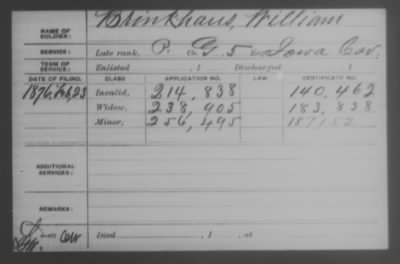 NAME OF SOLDIER: Klinkhaus, William
SERVICE: Late rank, P. Co. G. 5 Reg't Iowa Cav.
TERM OF SERVICE: Enlisted , 1 Discharged , 1
DATE OF FILING. CLASS APPLICATION NO. LAW. CERTIFICATE NO.
1876, Feb, 23 Invalid, 214,838 140,462
Widow, 238,905 183,838
Minor, 256,495 187152
ADDITIONAL SERVICES:
REMARKS:
Cav Died , 1 , at